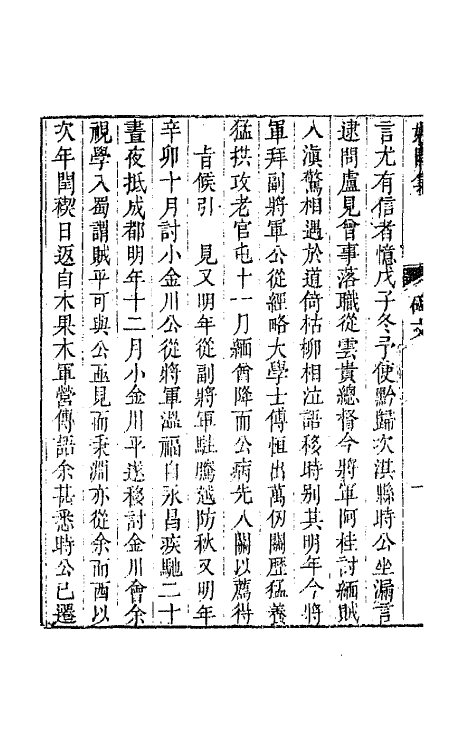 碑文
一
言尤有信者憶戊子冬予使黔歸次淇縣時公坐漏言
逮問盧見曾事落職從雲貴總督今將軍阿桂討緬賊
入滇驚相遇於道倚枯柳相泣語移時別其明年今將
軍拜副將軍公從經略大學士傅恒出萬仞關歷猛養
猛拱攻老官屯十一月緬酋降而公病先入關以薦得
旨候引　見又明年從副將軍駐騰越防秋又明年
辛卯十月討小金川公從將軍溫福自永昌疾馳二十
晝夜抵成都明年十二月小金川平遂移討金川會余
視學入蜀謂賊平可與公亟見而秉淵亦從余而西以
次年閏稧日返自木果木軍營傳語余甚悉時公已遷